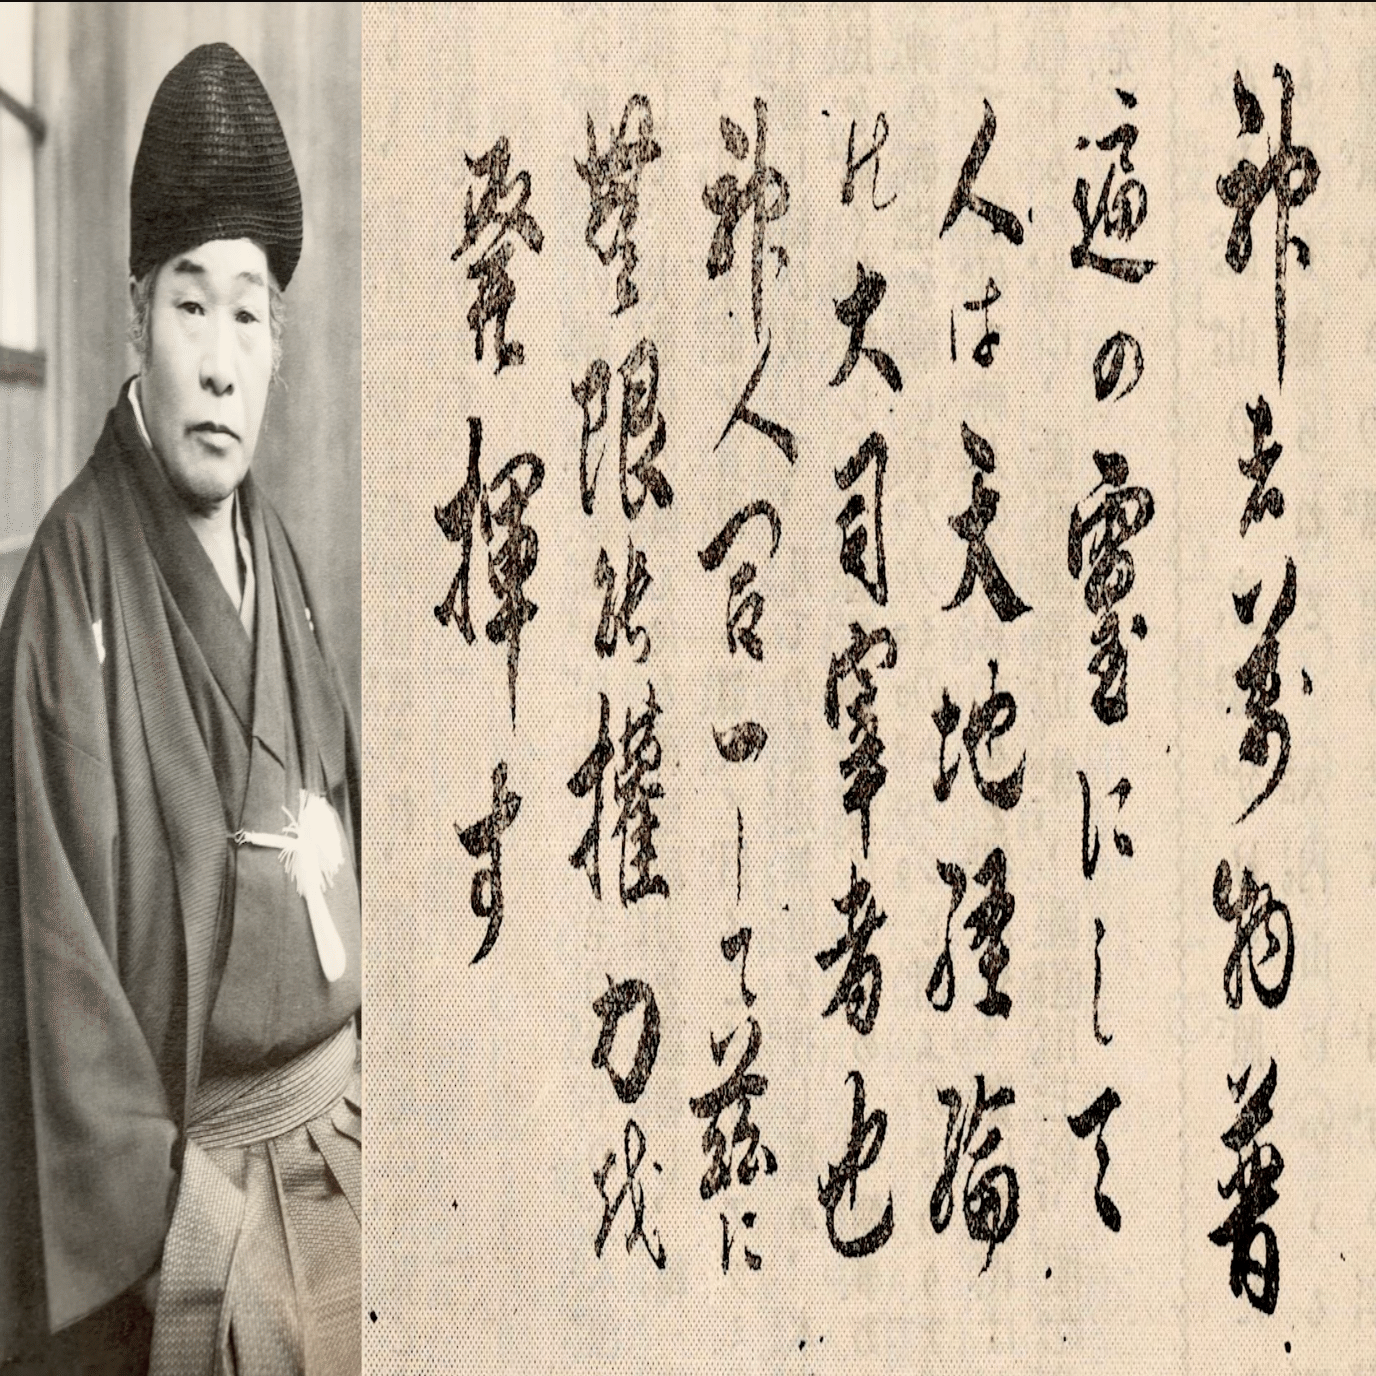 神者萬物普
遍の霊にして
人は天地経綸
の大司宰者也
神人合一して茲に
無限の権力を
発揮す